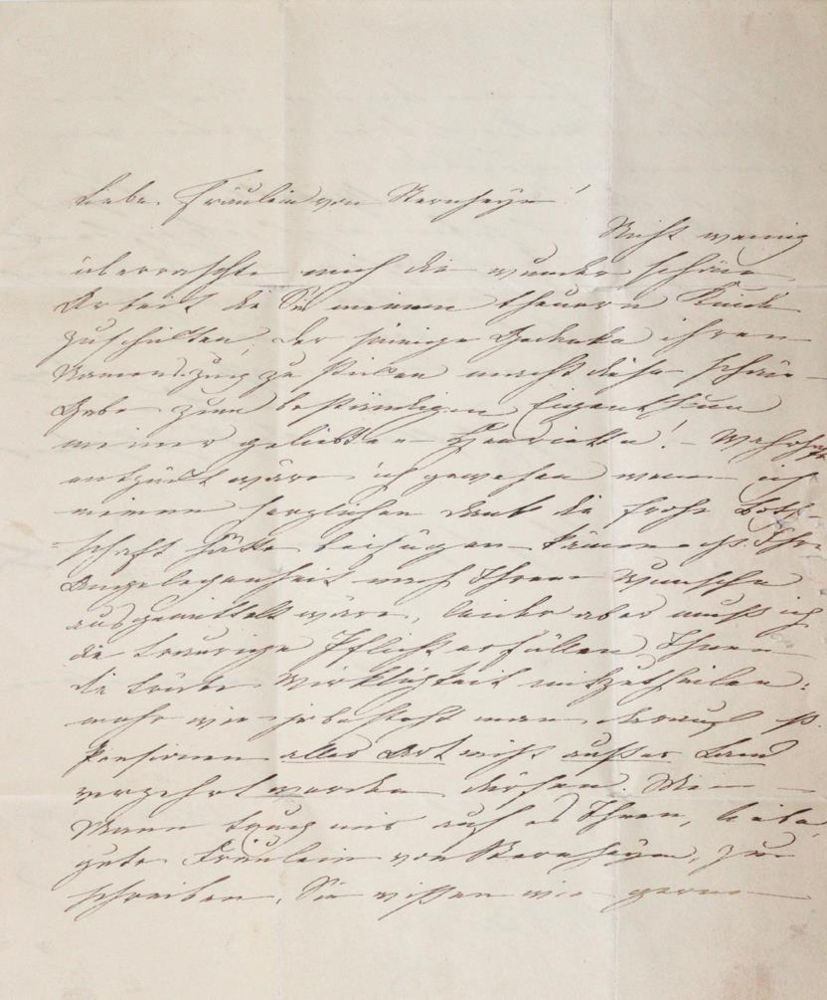 Liebe Fräulein von Sternheym!
Nicht wenig
überraschte mich die wunder schöne
Arbeit die Sie meinem theuern Kinde
zuschickten, der sinnige Gedanke ihren
Namenszug zu sticken macht diese schöne
Gabe zum beständigen Eigenthum
meiner geliebten Henriette! – Wahrhaft
entzückt wäre ich gewesen wenn ich
meinem herzlichen Dank die frohe Bot-
schaft hätte beifügen können, Ihre
Angelegenheit nach Ihrem Wunsche
ausgemittelt wäre, leider aber muß ich
die traurige Pflicht erfüllen, Ihnen
die Wirklichkeit mitzutheilen:
mehr wie je besteht man darauf
Pensionen aller Art nicht außer Land
verzehrt werden dürfen. Mein
Mann trug mir auf es Ihnen, liebe,
gute Fräulein von Sternheym, zu
schreiben, Sie wissen wie gerne